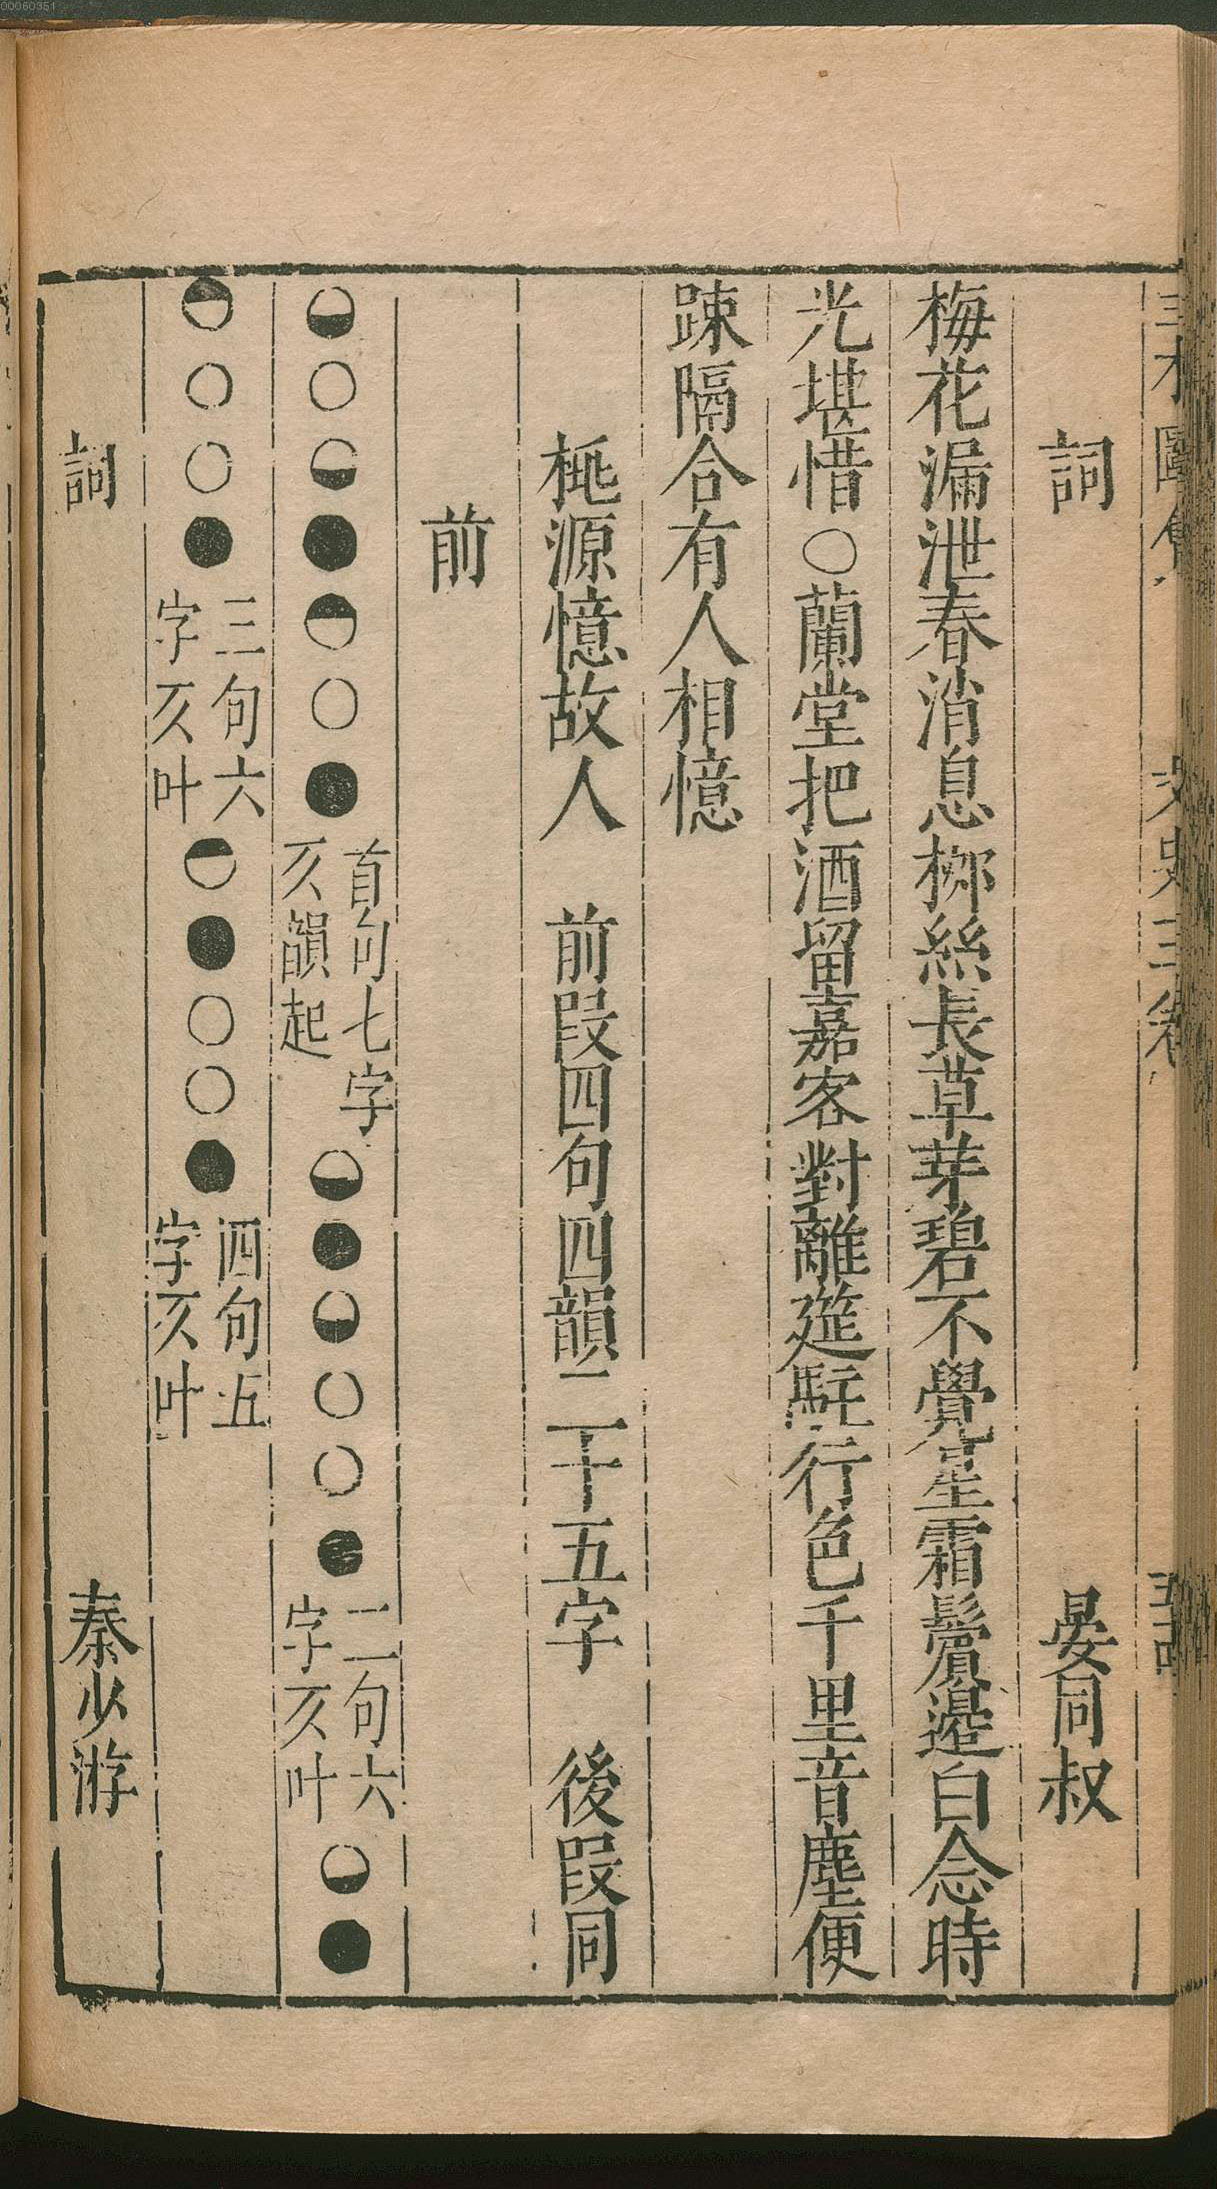 00060351
三才圖會 文史三卷
詞 晏同叔
梅花漏泄春消息桞絲長草芽碧不覺星霜鬢邉白念時
光堪惜○蘭堂把酒留嘉客對離筵駐行色千里音塵便
踈隔合有人相憶
桃源憶故人 前段四句四韻二十五字 後段同
前
◒○◒●◓○●首句七字仄韻起◒●◒○○●二句六字仄叶◒●
◓○○●三句六字仄叶◓●○○●四句五字仄叶
詞 秦少游